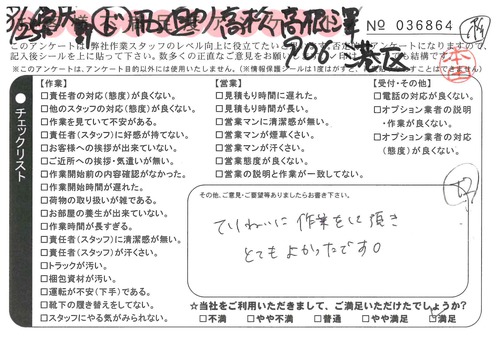 No 036864
このアンケートは弊社作業スタッフのレベル向上に役立てたい
記入後シールを上に貼って下さい。
※このアンケートは、アンケート目的以外には使用いたしません。
チェックリスト
【作業】
□責任者の対応(態度)が良くない。
□他のスタッフの対応(態度)が良くない。
□作業を見ていて不安がある。
□責任者(スタッフ)に好感が持てない。
□お客様への挨拶が出来ていない。
□ご近所への挨拶・気遣いが無い。
□作業開始前の内容確認がなかった。
□作業開始時間が遅れた。
□荷物の取り扱いが雑である。
□お部屋の養生が出来ていない。
□作業時間が長すぎる。
□責任者(スタッフ)に清潔感が無い。
□責任者(スタッフ)が汗くさい。
□トラックが汚い。
□梱包資材が汚い。
□運転が不安(下手)である。
□靴下の履き替えをしてない。
□スタッフにやる気がみられない。
【営業】
□見積もり時間に遅れた。
□見積もり時間が長い。
□営業マンに清潔感が無い。
□営業マンが煙草くさい。
□営業マンが汗くさい。
□営業態度が良くない。
□営業の説明と作業が一致してない。
【受付・その他】
□電話の対応が良くない。
□オプション業者の説明
・作業が良くない。
□オプション業者の対応
(態度)が良くない。
その他、ご意見・ご要望等ありましたらお書き下さい。
ていねいに作業をして頂き
とてもよかったです。
☆当社をご利用いただきまして、ご満足いただけたでしょうか?
□不満 □やや不満 □普通 □やや満足 □満足